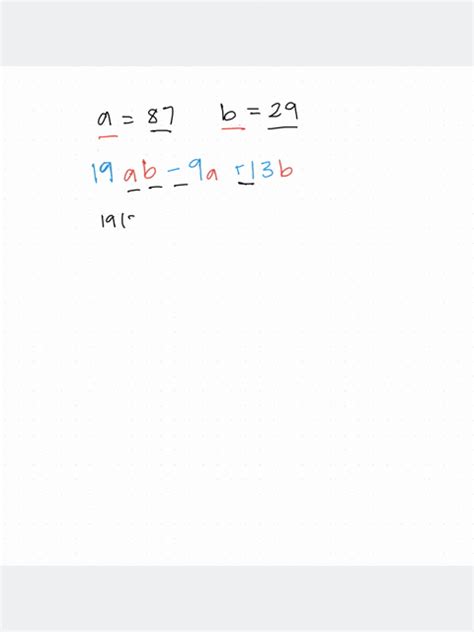 a = 87 b = 29
19 ab - 9a + 13b
19(